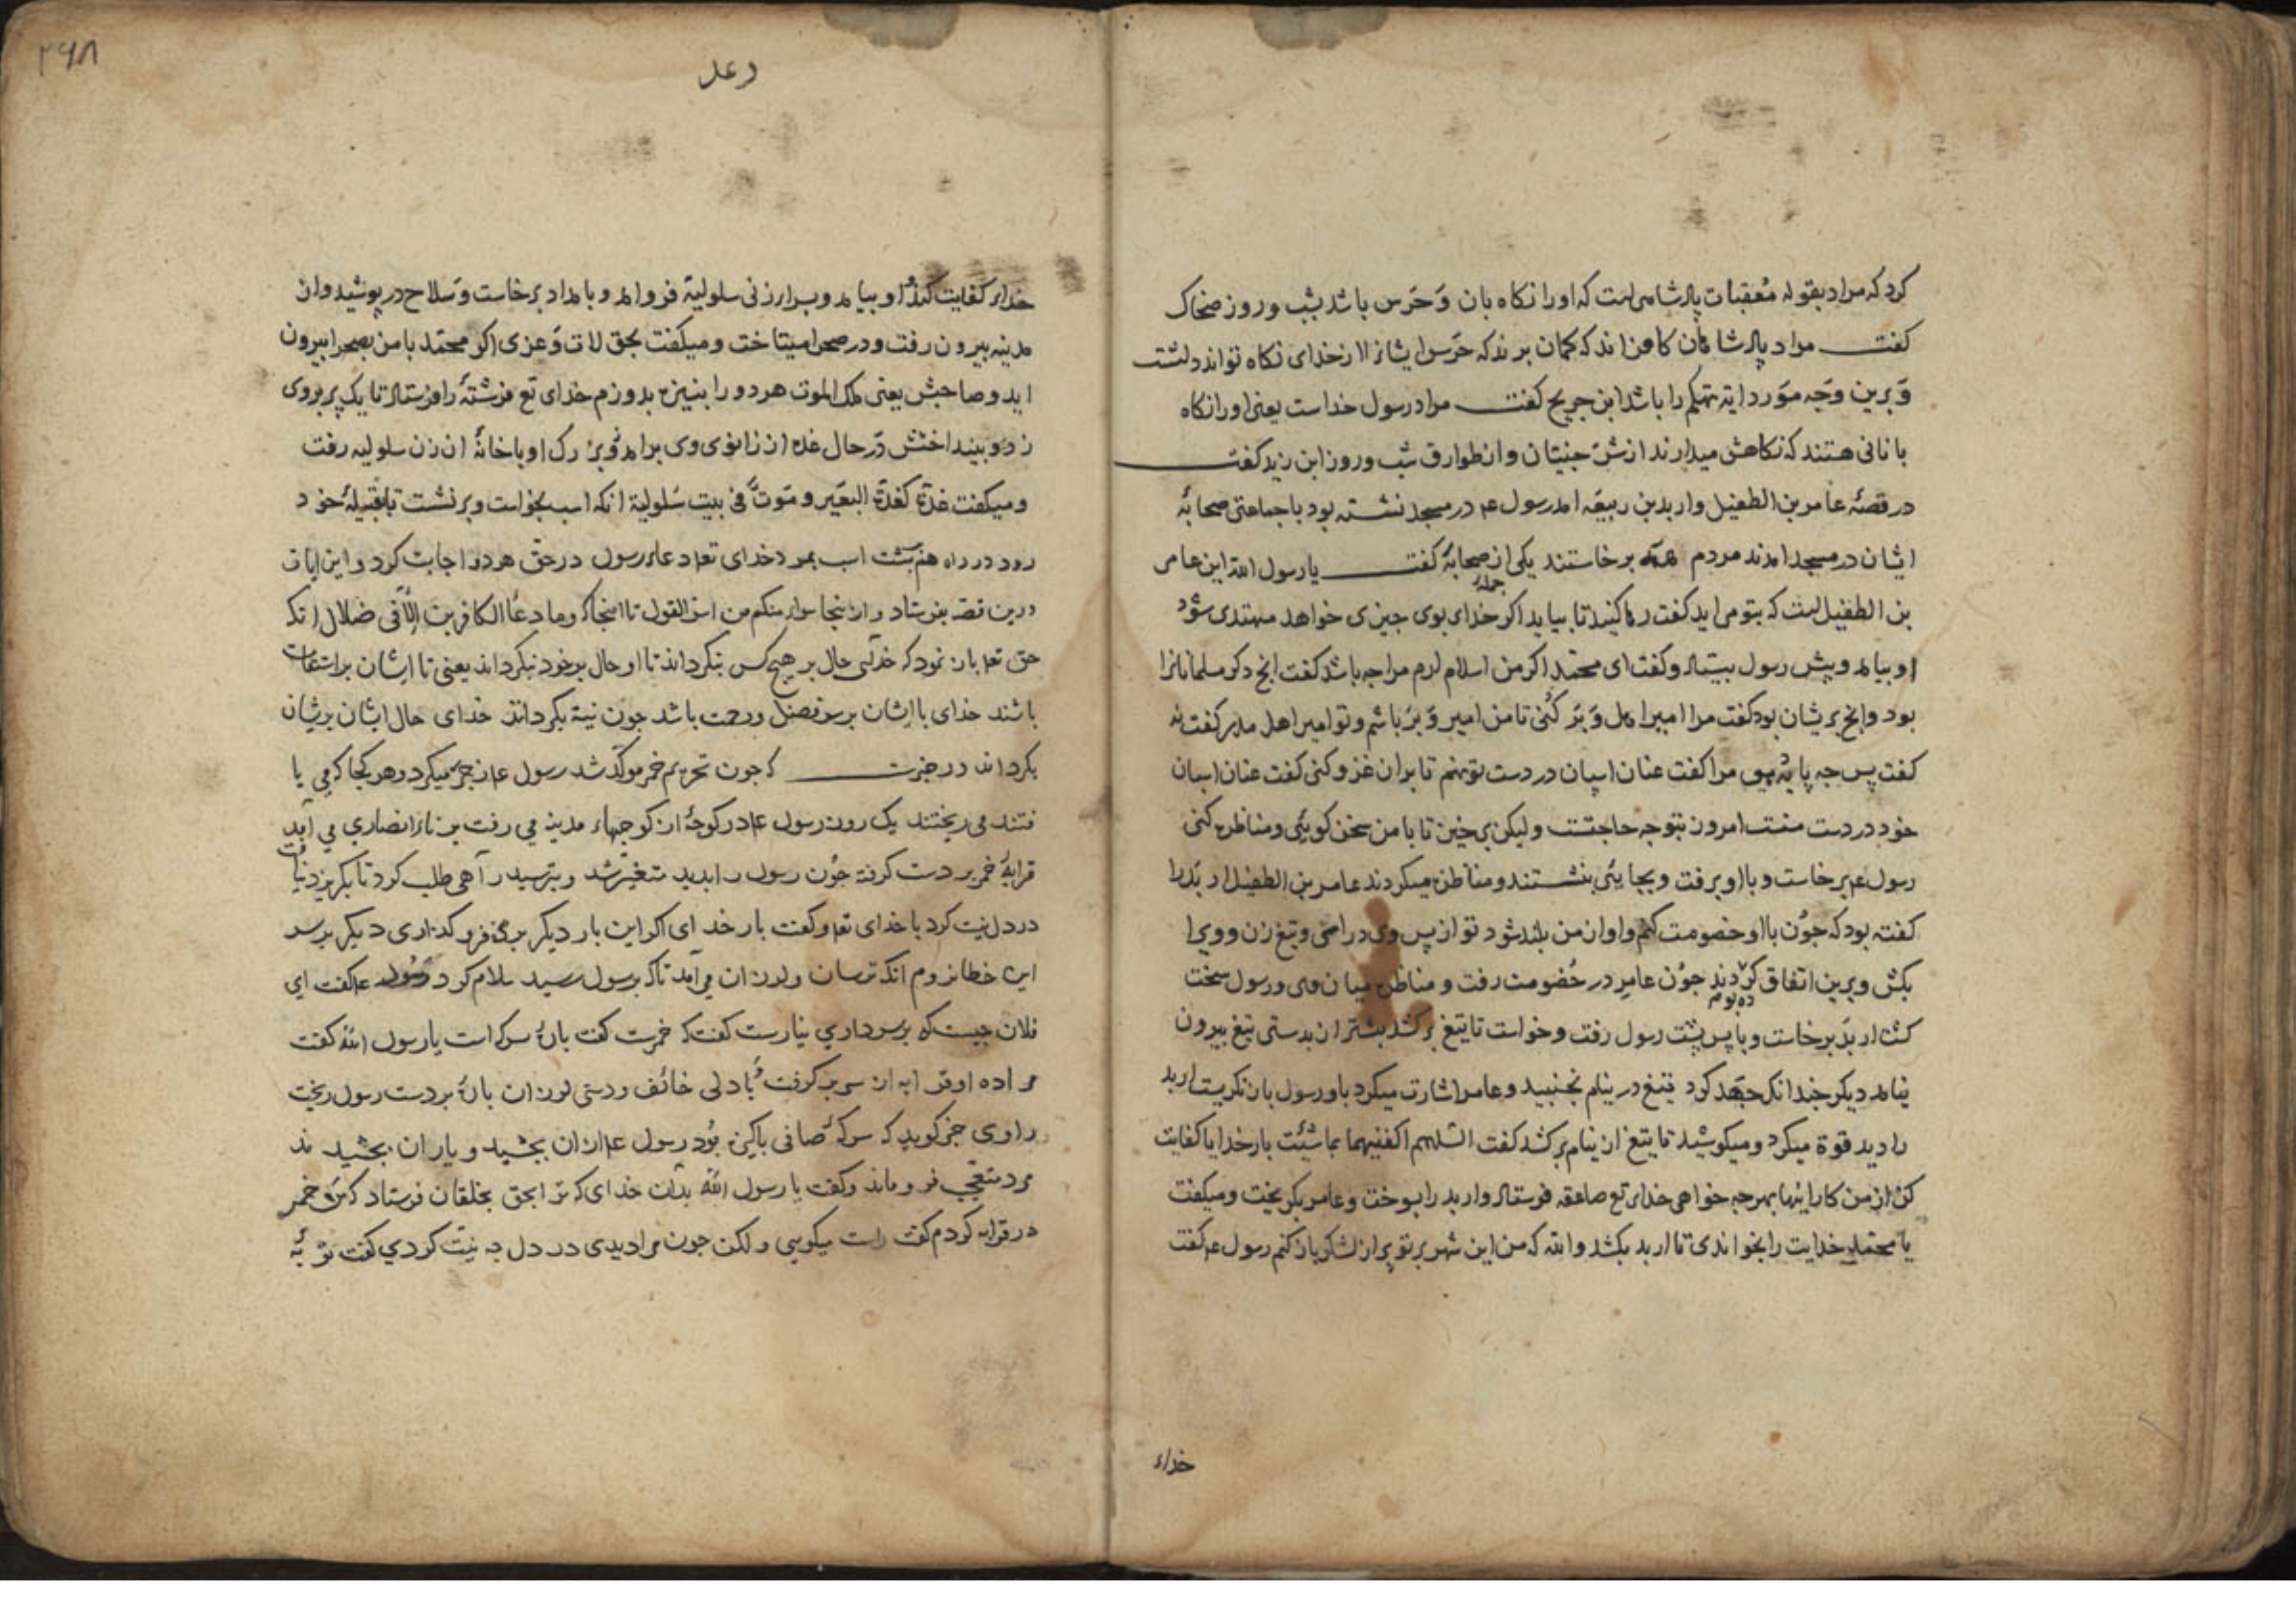 کرد که مراد بقوله معقبات پادشاهی است که او را نکاه بان و حرس باشد بشب و روز ضحاک
کفت مراد پادشاهان کافران اند که کمان برند که حرس ایشانرا از خدای نکاه تواند داشت
و برین وجه مورد ایة تهکم را باشد ابن جریح کفت مراد رسول خداست یعنی او را نکاه
بانانی هستند که نکاهش میدارند از شر جنیان و از طوارق شب و روز ابن زید کفت
در قصهٔ عامر بن الطفیل و اربد بن ربیعه امد رسول عم در مسجد نشسته بود با جماعتی صحابهٔ
ایشان در مسجد امدند مردم همه برخاستند یکی از صحابهٔ کفت یا رسول الله این عامر
بن الطفیل است که بتو می اید کفت رها کنید تا بیاید اکر خدای بوی چیزی خواهد مهتدی شود
او بیامد و پیش رسول بیستاد و کفت ای محمد اکر من اسلام ارم مرا چه باشد کفت انچ دکر مسلمانانرا
بود و انچ بریشان بود کفت مرا امیر اهل وبر کنی تا من امیر وبر باشم و تو امیر اهل مدر کفت نه
کفت پس چه پایه بود مرا کفت عنان اسپان در دست تو نهم تا بران غزو کنی کفت عنان اسپان
خود در دست منست امروز بتو چه حاجتست ولیکن برخیز تا با من سخن کویی و مناظره کنی
رسول عم برخاست و با او برفت و بجایی بنشستند و مناظره میکردند عامر بن الطفیل اربد را
کفته بود که چون با او خصومت کنم و اواز من بلند شود تو از پس وی درای و تیغ زن و ویرا
بکش و برین اتفاق کرده بودند چون عامر در خصومت رفت و مناظره میان وی و رسول سخت
کشت اربد برخاست و با پس پشت رسول رفت و خواست تا تیغ برکشد بیشتر از بدستی تیغ بیرون
نیامد دیکر چندانک جهد کرد تیغ در نیام نجنبید و عامر اشارت میکرد باو رسول باز نکریست اربد
را دید قوة میکرد و میکوشید تا تیغ از نیام برکشد کفت اللهم اکفنیهما بما شئت بار خدایا کفایت
کن از من کار اینها بهرچه خواهی خدای تع صاعقه فرستاد و اربد را بسوخت و عامر بکریخت و میکفت
یا محمد خدایت را بخواندی تا اربد بکشد والله که من این شهر بر تو پر از لشکر باز کنم رسول عم کفت
خدای
۲۶۸
رعد
خدای کفایت کند او بیامد و بسرای زنی سلولیة فرو امد و بامداد برخاست و سلاح در پوشید و از
مدینه بیرون رفت و در صحرا میتاخت و میکفت بحق لات و عزی اکر محمد با من بصحرا بیرون
اید و صاحبش یعنی ملک الموت هر دو را بنیزه بدوزم خدای تع فرشتهٔ را فرستاد تا یک پر بروی
زد و بینداختش در حال غده از زانوی وی برامد و بزرک او با خانهٔ ان زن سلولیه رفت
و میکفت غدة کغدة البعیر و موت فی بیت سلولیة انکه اسب بخواست و برنشست تا بقبیلهٔ خود
رود در راه هم بر پشت اسب بمرد خدای تعم دعای رسول در حق هر دو اجابت کرد و این ایات
درین قصه بفرستاد و از اینجا سواء منکم من اسر القول تا انجا که و ما دعا الکافرین الا فی ضلال انکه
حق تعم بازنمود که خدای حال بر هیچ کس بنکرداند تا او حال بر خود نکرداند یعنی تا ایشان بر استقامت
باشند خدای با ایشان بر سر فضل و رحمت باشد چون نیة بکردانند خدای حال ایشان بریشان
بکرداند در خبرست که چون تحریم خمر موکد شد رسول عم زجر میکرد و هر کجا که می یا
فتند می ریختند یک روز رسول عم در کوچهٔ از کوچهاء مدینه می رفت برنائی انصاری می آمد
قرابهٔ خمر بر دست کرفته چون رسول را بدید متغیر شد و بترسید راهی طلب کرد تا بکریزد نیافت
در دل نیت کرد با خدای تعم و کفت بار خدای اکر این بار دیکر بر من فرو کذاری دیکر بر سر
این خطا نروم انکه ترسان و لرزان می آمد تا که برسول رسید سلام کرد رسول عم کفت ای
فلان چیست که بر سر داری نیارست کفت که خمرست کفت پارهٔ سرکه است یا رسول الله کفت
مرا ده او قرابه از سر برکرفت بادلی خائف و دستی لرزان پارهٔ بر دست رسول ریخت
راوی خبر کوید که سرکهٔ صافی پاکیزه بود رسول عم ازان بچشید و یاران بچشیدند
مرد متعجب فرو ماند و کفت یا رسول الله بدان خدای که ترا بحق بخلقان فرستاد که من خمر
در قرابه کردم کفت راست میکویی ولکن چون مرا دیدی در دل چه نیت کردی کفت توبهٔ